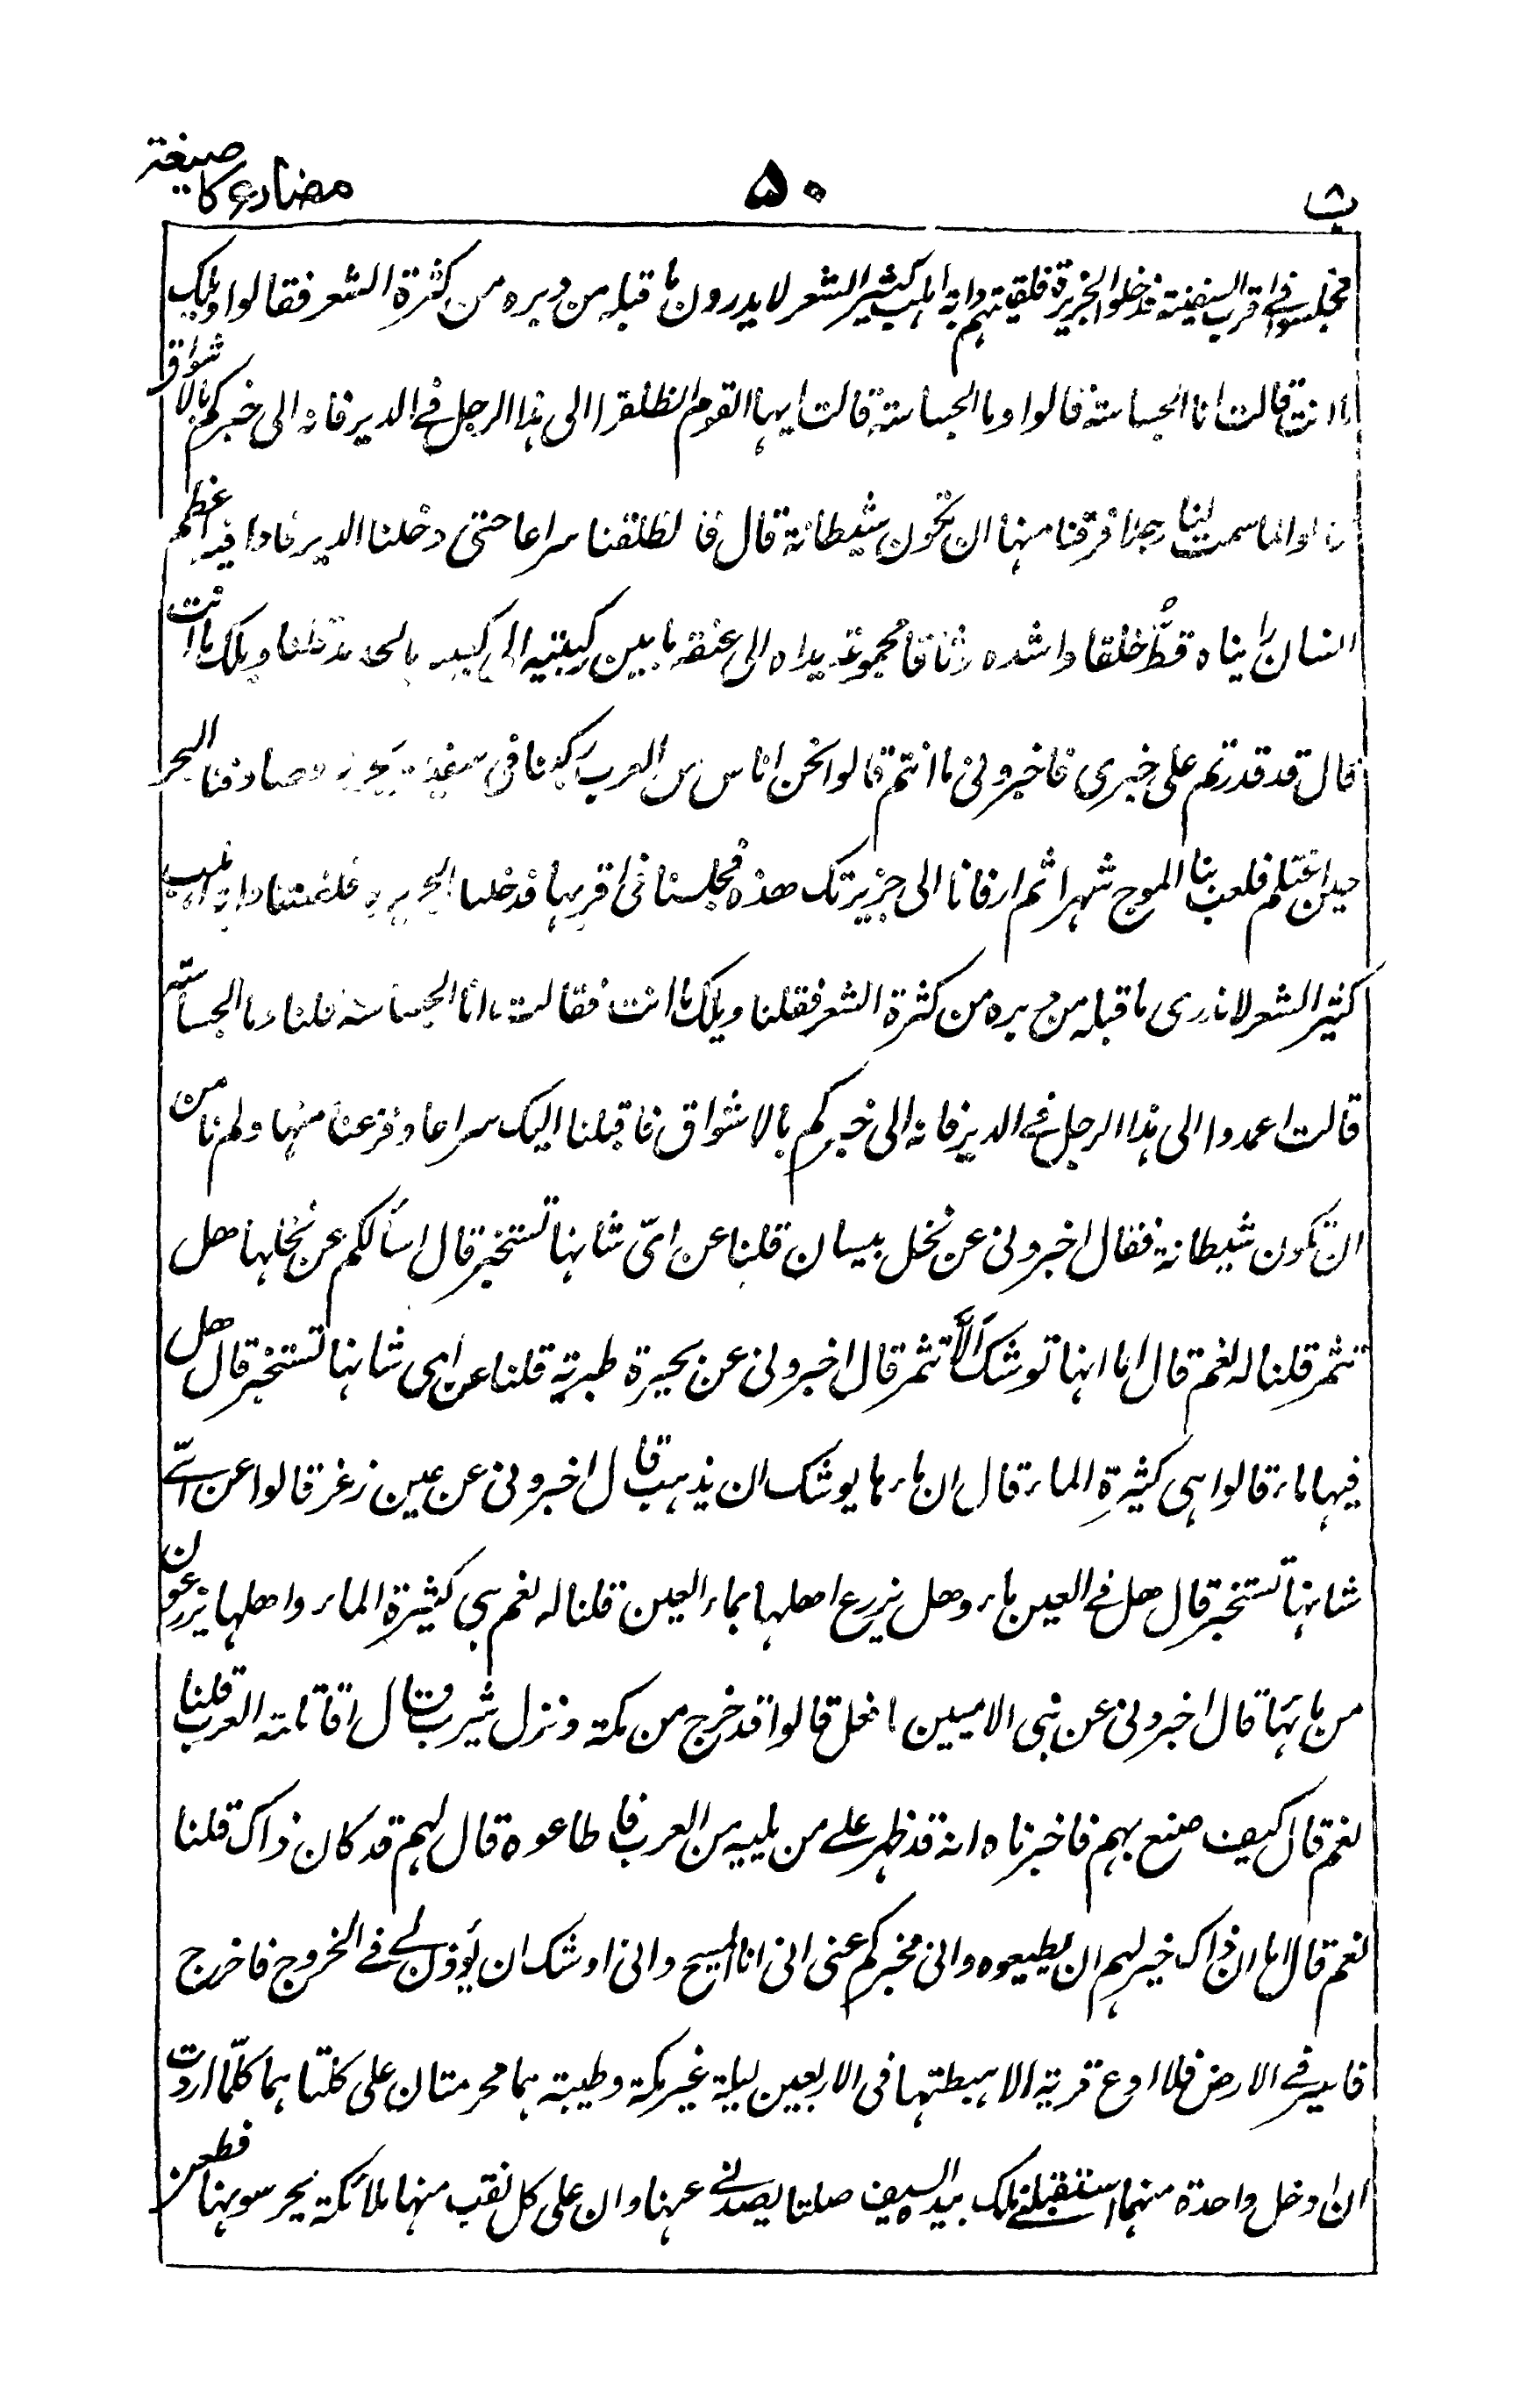 ث ۵۰ مضارع کا صیغۃ
فجلسوا فی اقرب السفینۃ فدخلوا الجزیرۃ فلقیتہم دابۃ اہلب کثیر الشعر لایدرون ما قبلہ من دبرہ من کثرۃ الشعر فقالوا ویلک
ما انت قالت انا الجساسۃ قالوا وما الجساسۃ قالت ایہا القوم انطلقوا الی ہذا الرجل فی الدیر فانہ الی خبرکم بالاشواق
قالوا لما سمت لنا رجلا فرقنا منہا ان تکون شیطانۃ قال فانطلقنا سراعا حتی دخلنا الدیر فاذا فیہ اعظم
انسان رأیناہ قطُّ خلقا واشدہ وثاقا مجموعۃ یداہ الی عنقہ ما بین رکبتیہ الی کعبیہ بالحدید قلنا ویلک ما انت
قال قد قدرتم علی خبری فاخبرونی ما انتم قالوا نحن اناس من العرب رکبنا فی سفینۃ بحریۃ فصادفنا البحر
حین اغتلم فلعب بنا الموج شہرا ثم ارفانا الی جزیرتک ھذہ فجلسنا فی اقربہا فدخلنا الجزیرۃ فلقیتنا دابۃ اہلب
کثیر الشعر لاندری ما قبلہ من دبرہ من کثرۃ الشعر فقلنا ویلک ما انت فقالت انا الجساسۃ قلنا وما الجساسۃ
قالت اعمدوا الی ہذا الرجل فی الدیر فانہ الی خبرکم بالاشواق فاقبلنا الیک سراعا وفزعنا منہا ولم نامن
ان تکون شیطانۃ فقال اخبرونی عن نخل بیسان قلنا عن ایّ شانہا تستخبر قال اسألکم عن نخلہا ھل
تثمر قلنا لہ نعم قال اما انہا توشک اَلَّا تثمر قال اخبرونی عن بحیرۃ طبریۃ قلنا عن ای شانہا تستخبر قال ھل
فیہا ماء قالوا ہی کثیرۃ الماء قال ان ماءہا یوشک ان یذہب قال اخبرونی عن عین زغر قالوا عن ایّ
شانہا تستخبر قال ھل فی العین ماء وھل یزرع اھلہا بماء العین قلنا لہ نعم ہی کثیرۃ الماء واھلہا یزرعون
من مائہا قال اخبرونی عن نبی الامیین ما فعل قالوا قد خرج من مکۃ ونزل یثرب قال اقاتلتہ العرب قلنا
نعم قال کیف صنع بہم فاخبرناہ انہ قد ظہر علی من یلیہ من العرب فاطاعوہ قال لہم قد کان ذاک قلنا
نعم قال اما ان ذاک خیر لہم ان یطیعوہ وانی مخبرکم عنی انی انا المسیح وانی اوشک ان یؤذن لی فی الخروج فاخرج
فاسیر فی الارض فلا ادع قریۃ الا ہبطتہا فی الاربعین لیلۃ غیر مکۃ وطیبۃ ہما محرمتان علی کلتاہما کلّما اردت
ان ادخل واحدۃ منہما استقبلنی ملک بیدہ السیف صلتا یصدنی عہنا وان علی کل نقب منہا ملائکۃ یحرسونہا فطعن